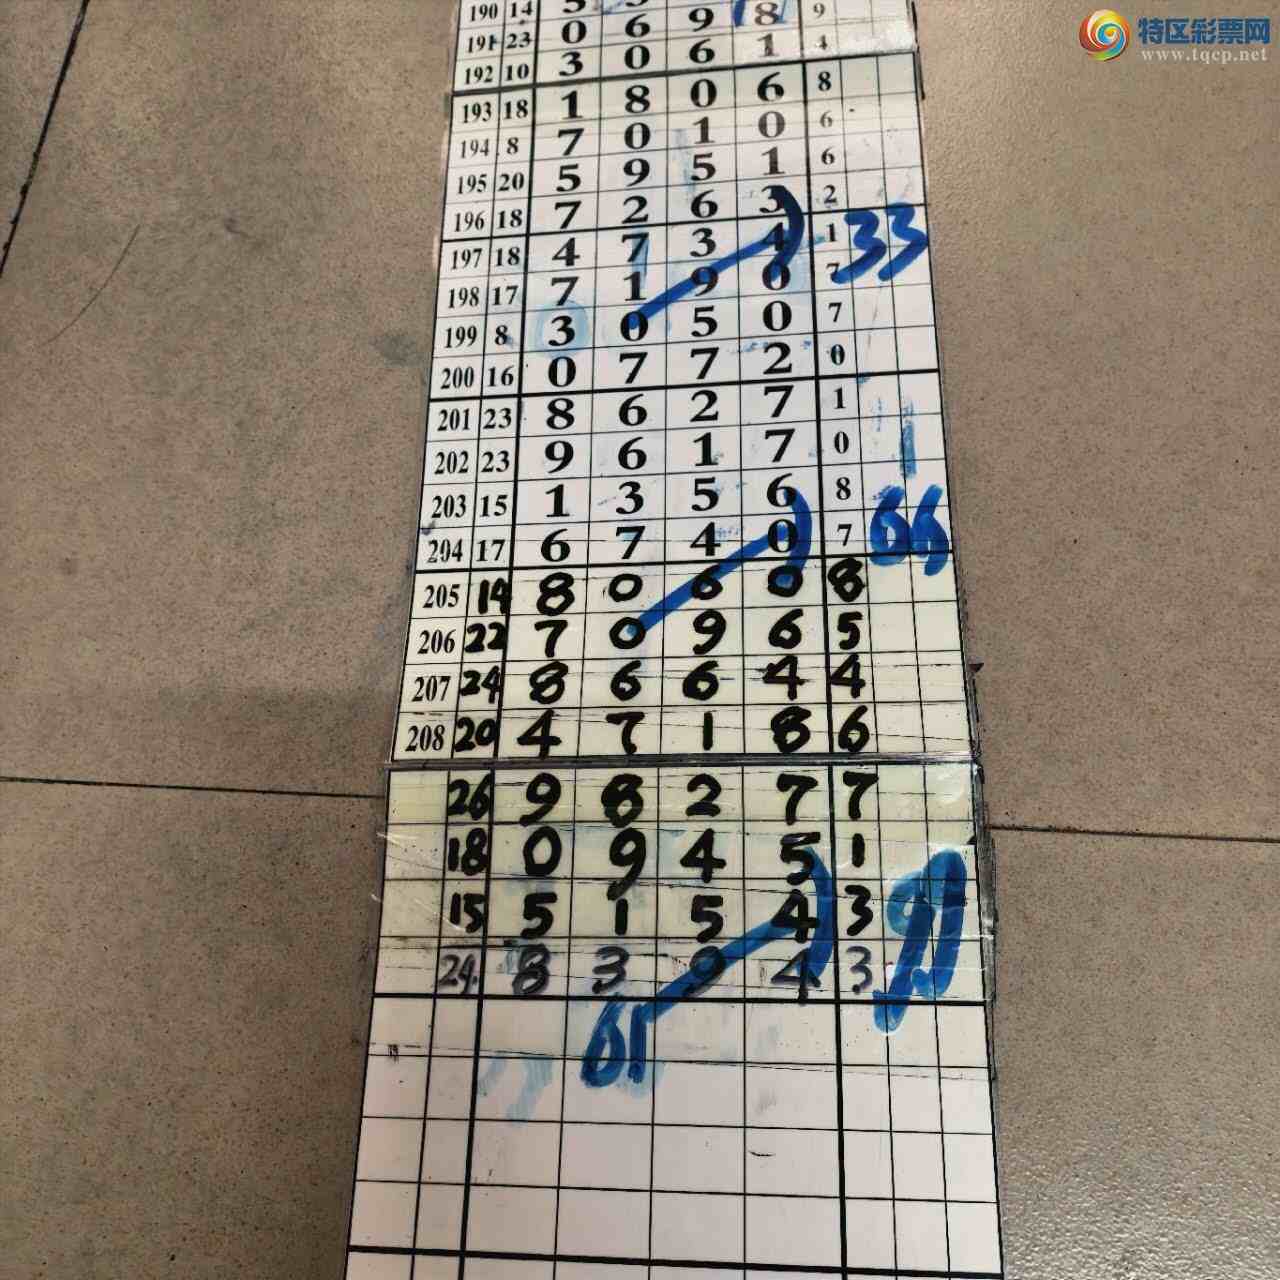 特区彩票网
www.tqcp.net
190 14 9
191 23 0 6 9 8 4
192 10 3 0 6 1
193 18 1 8 0 6 8
194 8 7 0 1 0 6
195 20 5 9 5 1 6
196 18 7 2 6 3 2
197 18 4 7 3 4 1 33
198 17 7 1 9 0 7
199 8 3 0 5 0 7
200 16 0 7 7 2 0
201 23 8 6 2 7 1
202 23 9 6 1 7 0
203 15 1 3 5 6 8
204 17 6 7 4 0 7 66
205 14 8 0 6 0 8
206 22 7 0 9 6 5
207 24 8 6 6 4 4
208 20 4 7 1 8 6
26 9 8 2 7 7
18 0 9 4 5 1
15 5 1 5 4 3 99
24 8 3 9 4 3